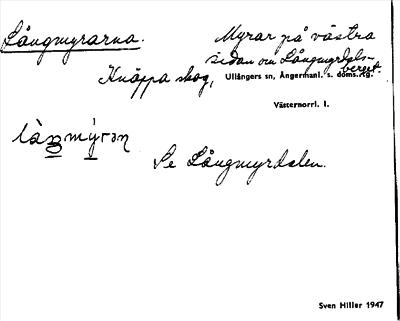 Långmyrarna. Myrar på västra
sidan om Långmyrdals-
berget.
Knäppa skog, Ullångers sn, Ångermanl. s. doms.sg.
Västernorrl. l.
Se Långmyrdalen.
Sven Hiller 1947